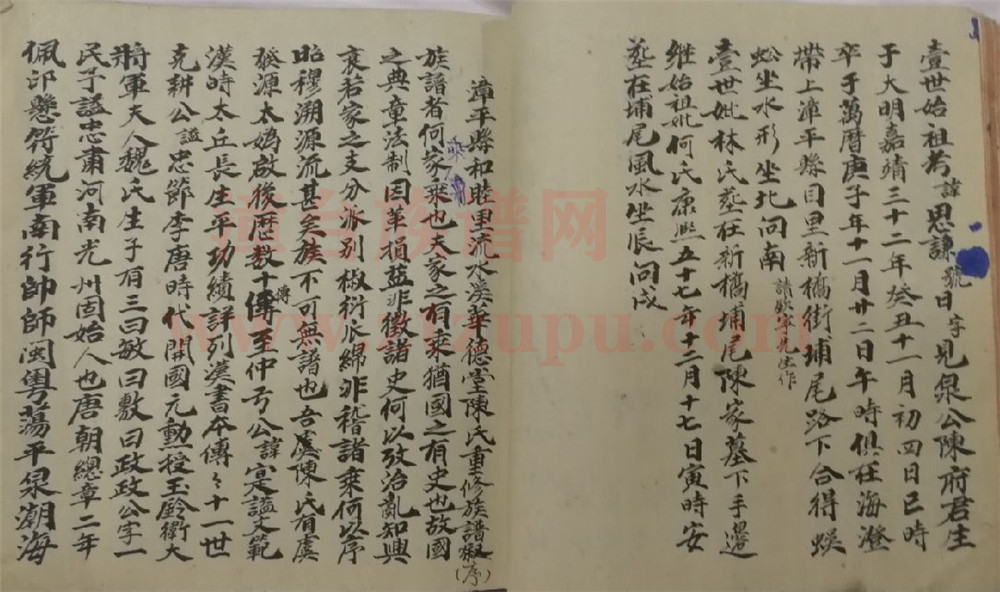 壹世始祖考諱思謙號日字見泉公陳府君生
于大明嘉靖三十二年癸丑十一月初四日巳時
卒于萬曆庚子年十一月廿二日午時俱在海澄
帶上漳平縣目里新橋街埔尾路下合得蜈
蚣坐水形坐北向南
壹世妣林氏葬在新橋埔尾陳家墓下手邊
继始祖妣何氏康熙五十七年十二月十七日寅時安
葬在埔尾風水坐辰向戌
漳平縣和睦里流水溪華德堂陳氏重修族譜
(序)
族譜者何家乘也夫家之有乘猶國之有史也故國
之典章法制因革損益非徵諸史何以攷治亂知興
衰若家之支分派別椒衍瓜綿非稽諸乘何以序
昭穆溯源流甚矣族不可無譜也吾虞陳氏有虞
發源太媯啟後歷數十傳至仲弓公諱寔謚文範
傳
漢時太丘長生平功績詳列漢書本傳々十一世
克耕公謚忠節李唐時代開國元勳授玉鈐衛大
將軍夫人魏氏生子有三曰敏曰敷曰政政公字一
民予謚忠肅河南光州固始人也唐朝總章二年
佩印懸符統軍南行帥師閩粵蕩平泉潮海
壇台族谱网
zupu.com